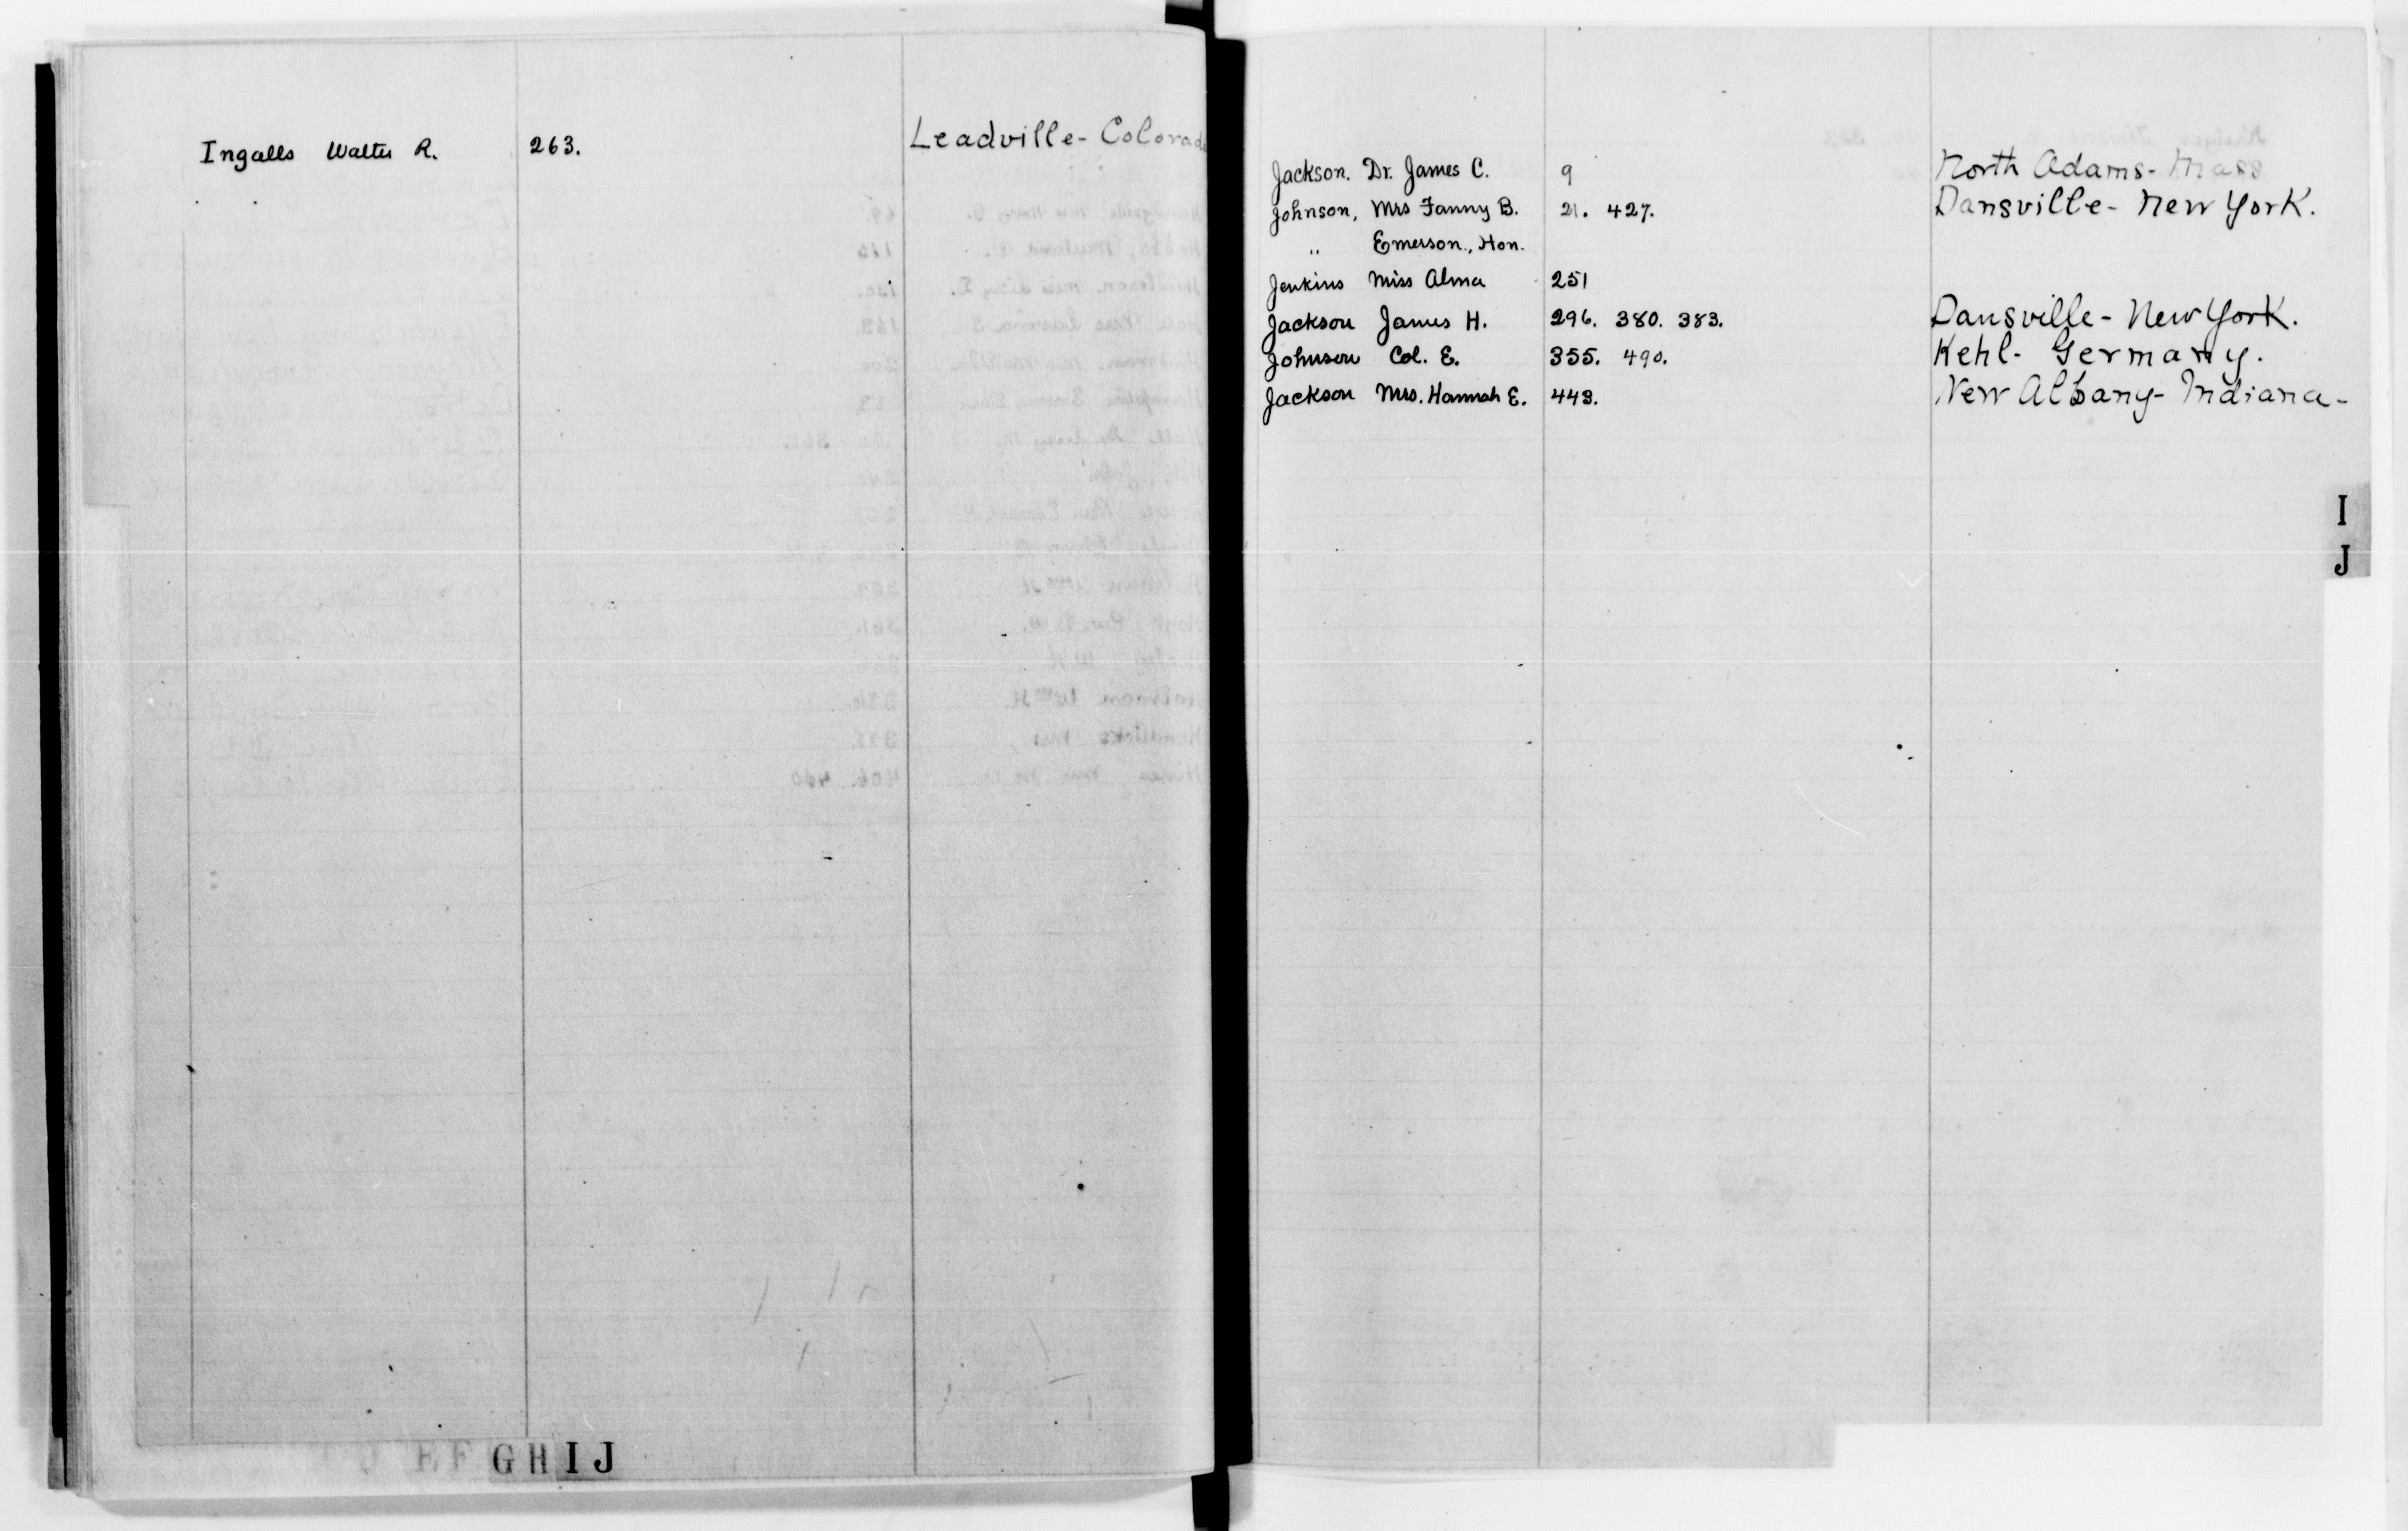 Ingalls Walter R. 263. Leadville- Colorado
G H I J
Jackson. Dr. James C. 9 North Adams- Mass
Johnson, Mrs Fanny B. 21. 427. Dansville- New York.
" Emerson, Hon.
Jenkins Miss Alma 251
Jackson James H. 296. 380. 383. Dansville- New York.
Johnson Col. E. 355. 490. Kehl- Germany.
Jackson Mrs. Hannah E. 443. New Albany- Indiana-
I
J